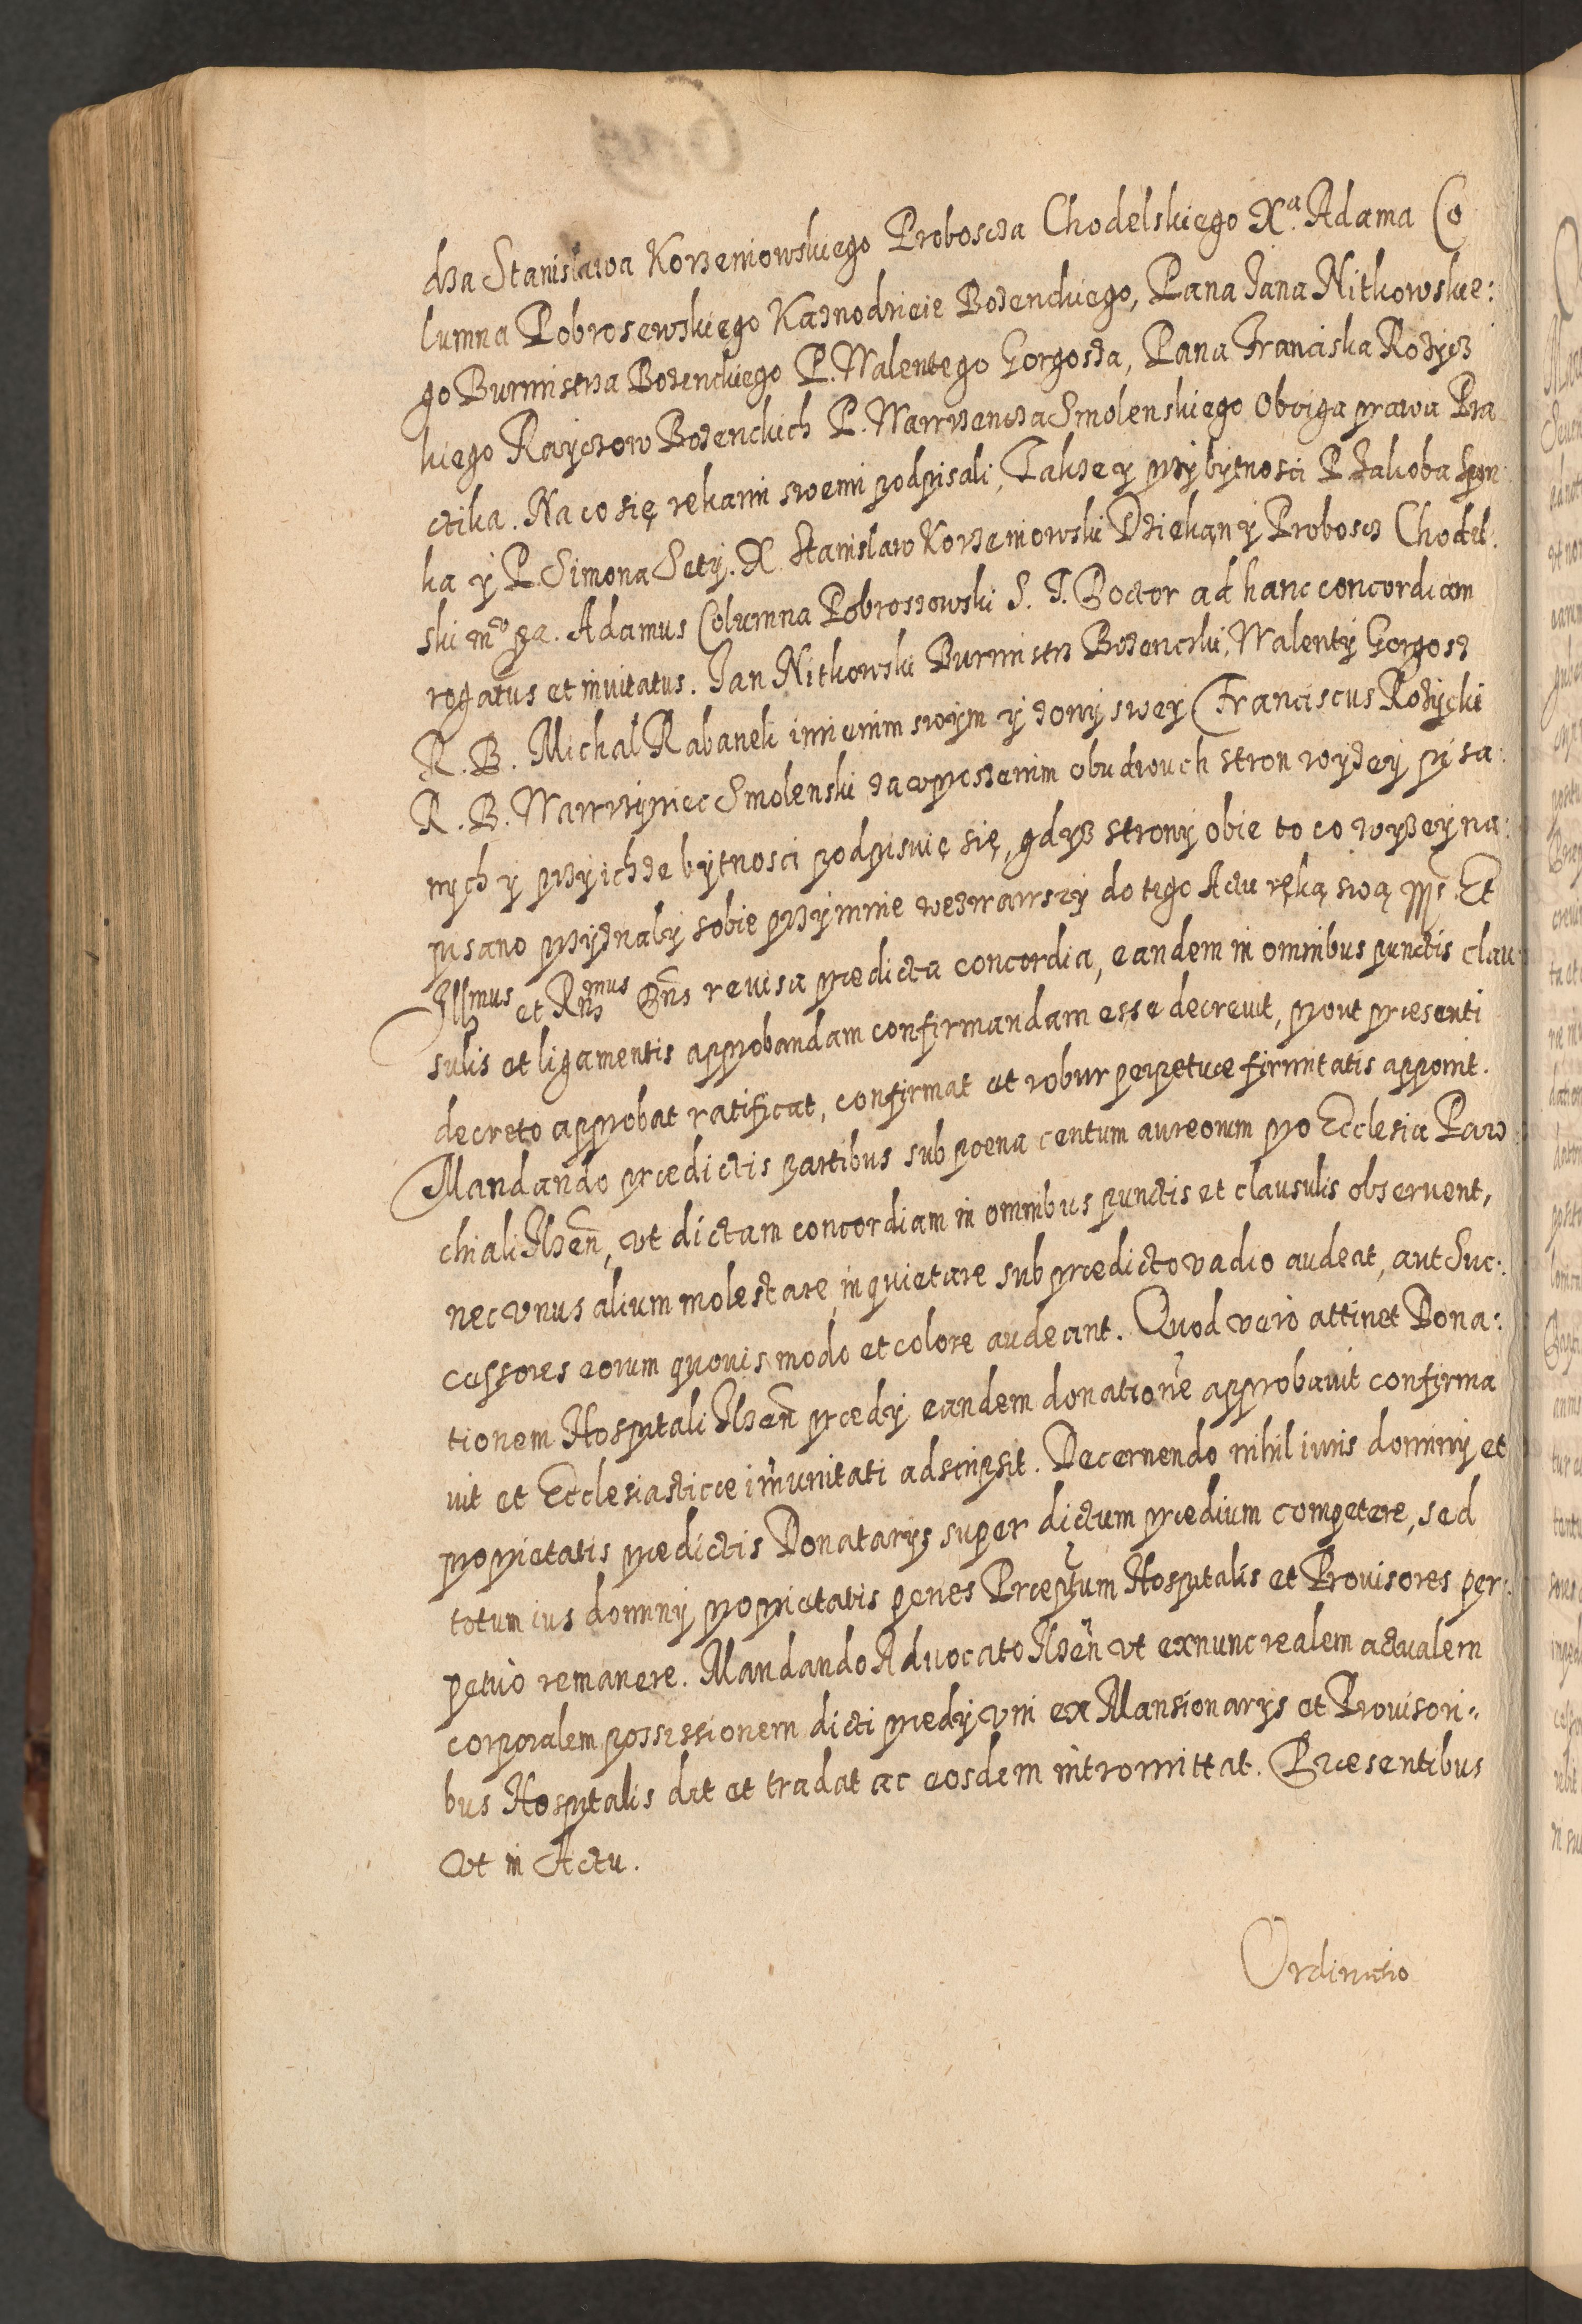 dza Stanisława Korzeniowskiego Proboscza Chodelskiego Xª. Adama Co
lumna Pobroszewskiego Kaznodzieie Bozenckiego, Pana Jana Nitkowskie:
go Burmistrza Bozenckiego P. Walentego Gorgosza, Pana Franciska Rożyc
kiego Rayczow Bozenckich P. Wawrzencza Smolenskiego oboiga prawa Pra
ctika. Na co się rekami swemi podpisali, Takze y przy bytnosci P. Jakoba
ka ÿ P. Simona Setÿ. X. Stanislaw Korzeniowski Dziekan ÿ Probosc Chodel
ski mp. Adamus Columna Pobroszowski S. T. Doctor ad hanc concordiam
rogatus et invitatus. Jan Nitkowski Burmistrz Bozencki, Walentÿ Gorgosz
R. B. Michal Rabanek imienim swoÿm ÿ zonÿ swey Franciscus Rożÿcki
R. B. Wawrzÿniec Smolenski za uproszenim obudwuch stron wyżeÿ pisa:
nych ÿ przÿ ichże bÿtnosci podpisuię się, gdÿz stronÿ obie to co wÿżeÿ na:
pisano przÿznalÿ sobie przÿ mnie wezwawszÿ do tego Actu ręką swą mp. Et
Illmus et Rndmus Dns revisa prædicta concordia, eandem in omnibus punctis clau
sulis et ligamentis approbandam confirmandam esse decrevit, prout præsenti
decreto approbat ratificat, confirmat et robur perpetuæ firmitatis apponit.
Mandando prædictis partibus sub poena centum aureorum pro Ecclesia Paro
chiali Ilzen, vt dictam concordiam in omnibus punctis et clausulis observent,
nec vnus alium molestare, inquietare sub prædicto vadio audeat, aut Suc:
cessores eorum quovis modo et colore audeant. Quod vero attinet Dona:
tionem Hospitali Ilzen prædÿ eandem donatione approbavit confirma
vit et Ecclesiasticæ imunitati adscripsit. Decernendo nihil iuris dominÿ et
proprietatis prædictis Donatarÿs super dictum prædium competere, sed
totum ius dominÿ proprietatis penes Præptum Hospitalis et Provisores per:
petuò remanere. Mandando Advocato Ilzen vt exnunc realem actualem
corporalem possessionem dicti prædÿ vni ex Mansionarÿs et Provisori:
bus Hospitalis det et tradat ac eosdem intromittat. Præsentibus
Vt in Actu.
Ordinatio